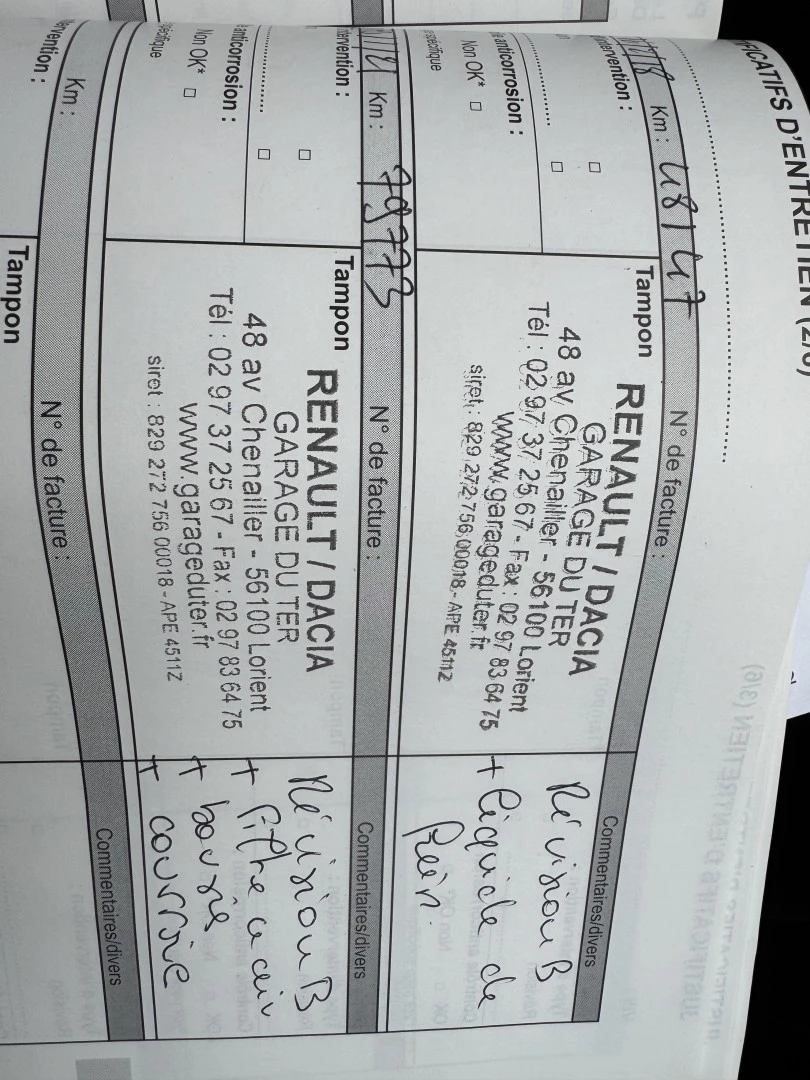 IFICATIFS D'ENTRETIEN (2/6)
Km : 48147
N° de facture :
Commentaires/divers
ntervention :
anticorrosion :
Non OK*
spécifique
Tampon
RENAULT / DACIA
GARAGE DU TER
48 av Chenailler - 56100 Lorient
Tél : 02 97 37 25 67 - Fax : 02 97 83 64 75
www.garageduter.fr
siret : 829 272 756 00018 - APE 4511Z
Révision B
+ liquide de
frein.
Km : 79773
N° de facture :
Commentaires/divers
tervention :
anticorrosion :
Non OK*
spécifique
Tampon
RENAULT / DACIA
GARAGE DU TER
48 av Chenailler - 56100 Lorient
Tél : 02 97 37 25 67 - Fax : 02 97 83 64 75
www.garageduter.fr
siret : 829 272 756 00018 - APE 4511Z
Révision B
+ filtre à air
+ bougie
+ courroie
Km :
N° de facture :
Commentaires/divers
ervention :
Tampon